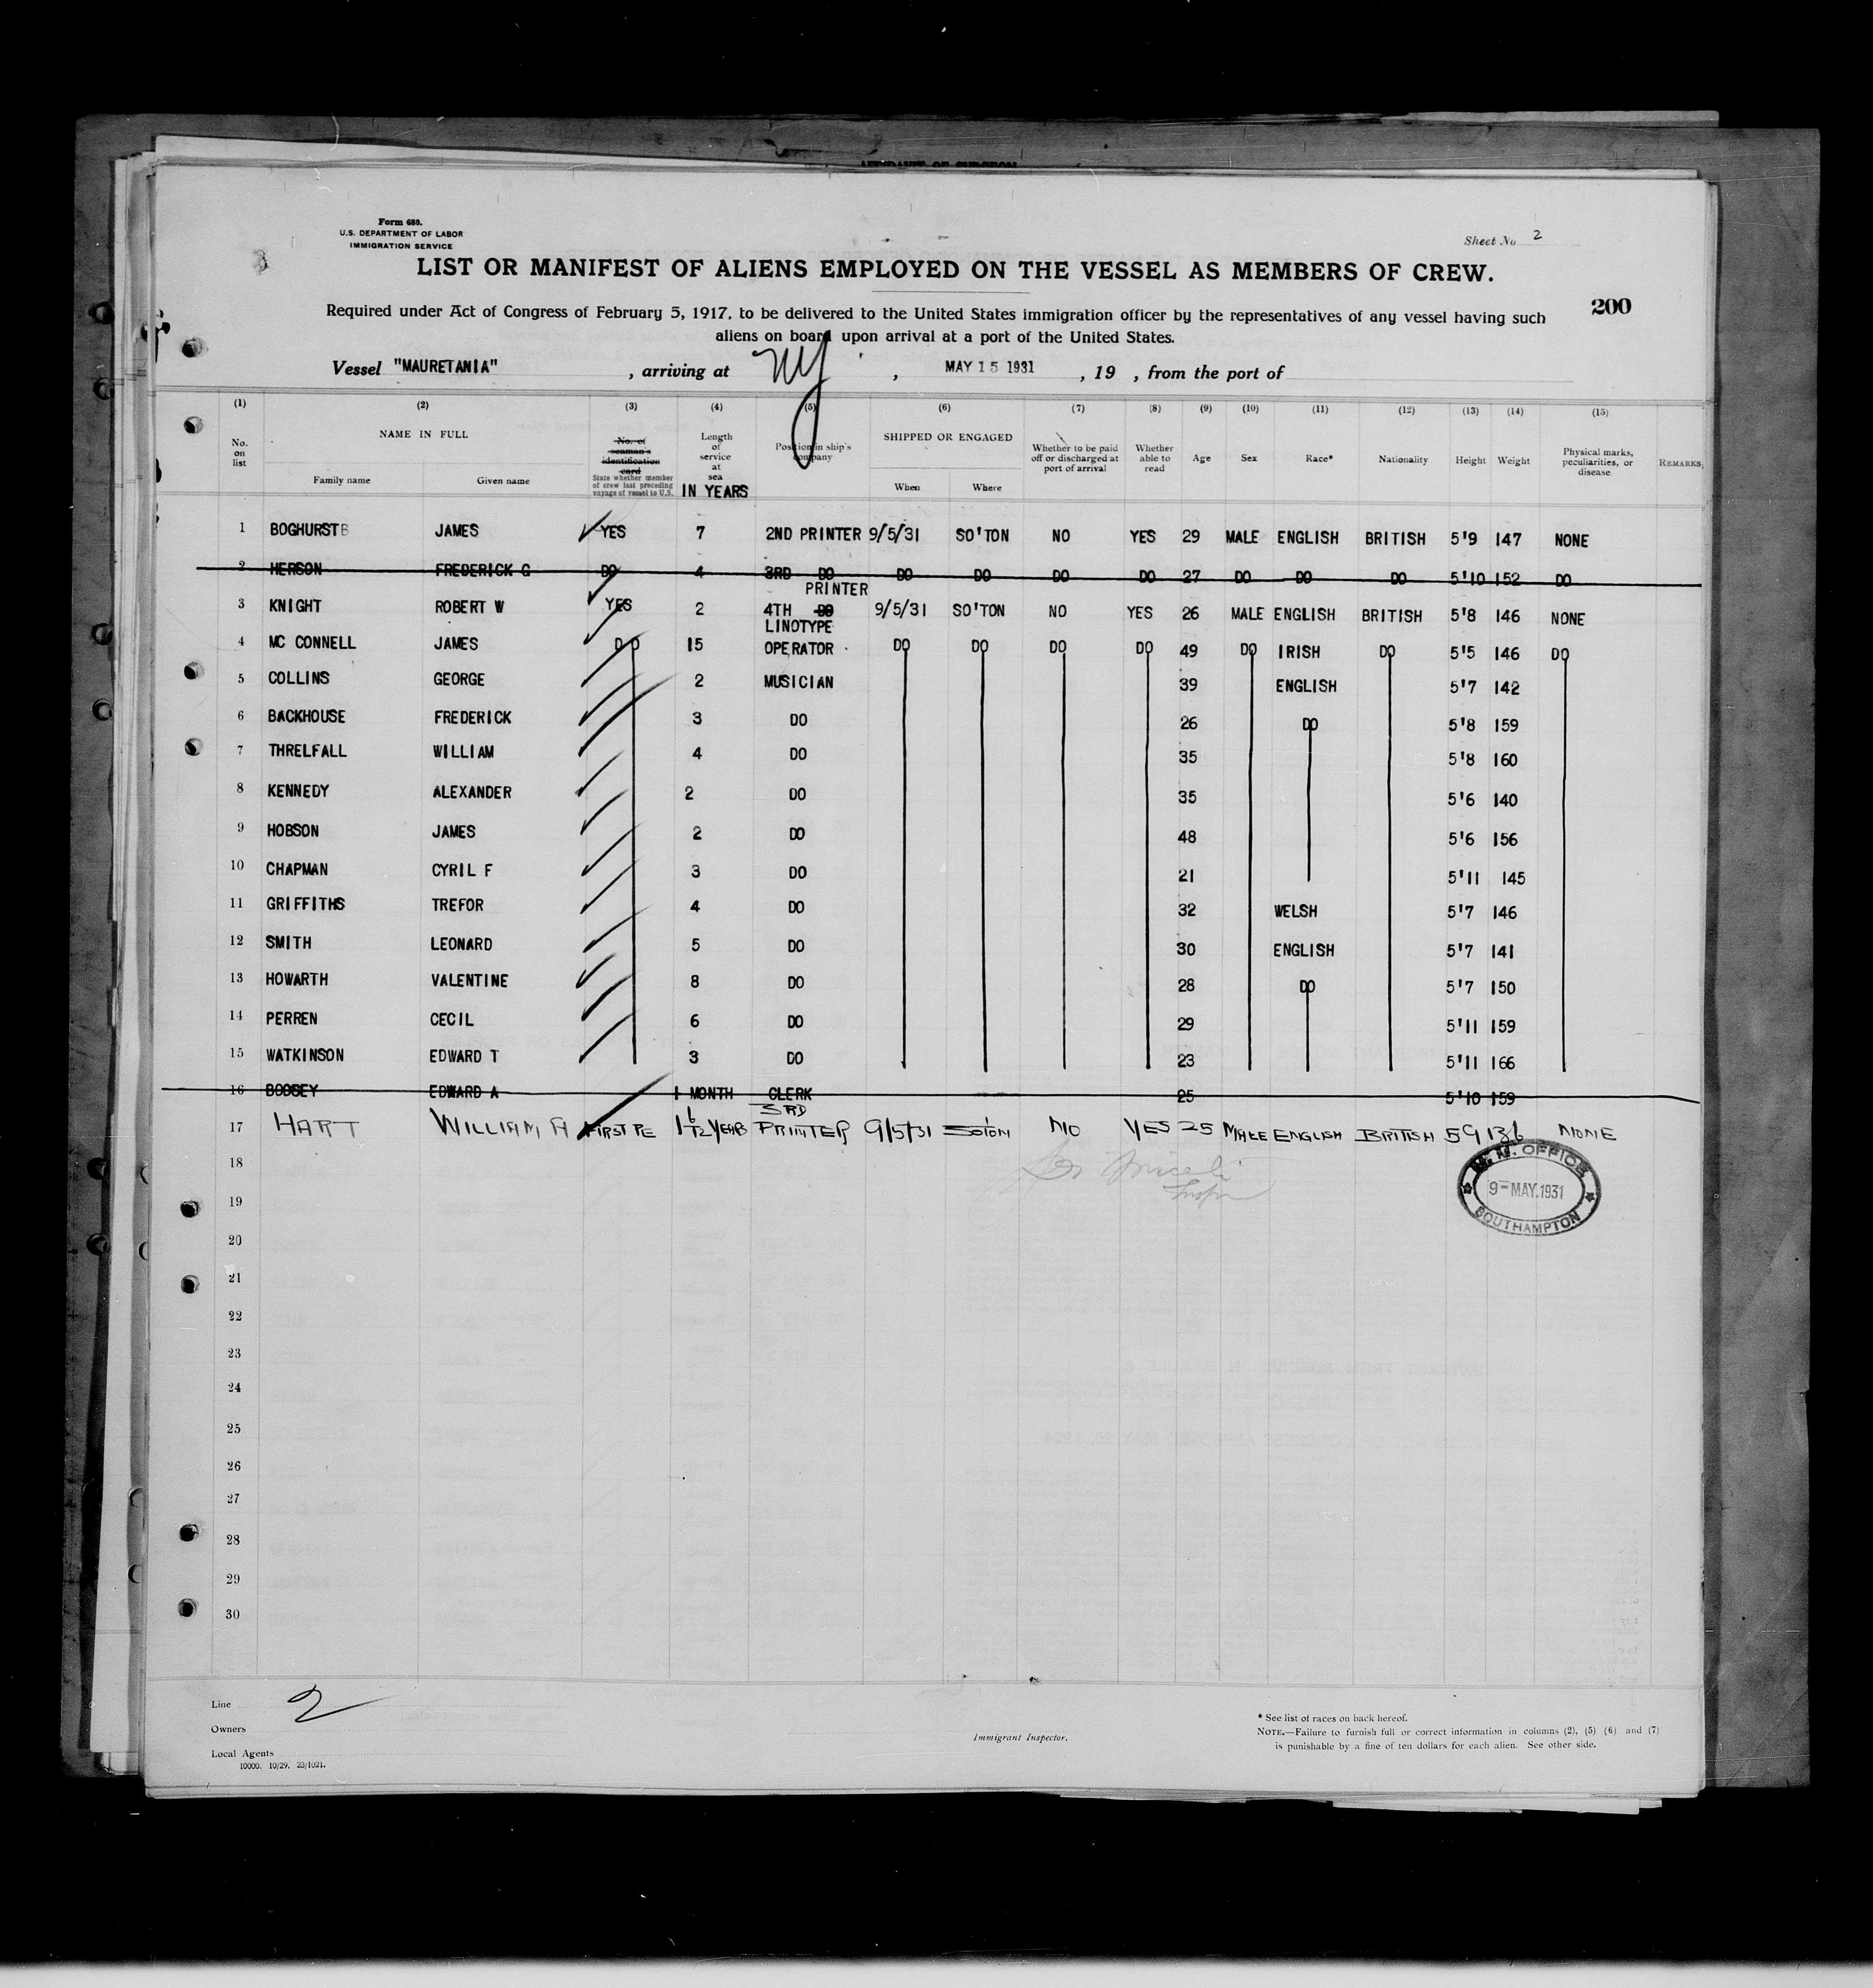 Form 680.
U.S. DEPARTMENT OF LABOR
IMMIGRATION SERVICE
Sheet No 2
LIST OR MANIFEST OF ALIENS EMPLOYED ON THE VESSEL AS MEMBERS OF CREW.
200
Required under Act of Congress of February 5, 1917, to be delivered to the United States immigration officer by the representatives of any vessel having such
aliens on board upon arrival at a port of the United States.
Vessel "MAURETANIA" , arriving at NY , MAY 15 1931 , 19 , from the port of
(1) (2) (3) (4) (5) (6) (7) (8) (9) (10) (11) (12) (13) (14) (15)
No. on list
NAME IN FULL
Family name Given name
No. of seaman's identification card
State whether member of crew last preceding voyage of vessel to U.S.
Length of service at sea
IN YEARS
Position in ship's company
SHIPPED OR ENGAGED
When Where
Whether to be paid off or discharged at port of arrival
Whether able to read
Age Sex Race* Nationality Height Weight
Physical marks, peculiarities, or disease
REMARKS
1 BOGHURST B JAMES YES 7 2ND PRINTER 9/5/31 SO'TON NO YES 29 MALE ENGLISH BRITISH 5'9 147 NONE
2 HERSON FREDERICK G DO 4 3RD DO DO DO DO DO 27 DO DO DO 5'10 152 DO
PRINTER
3 KNIGHT ROBERT W YES 2 4TH DO 9/5/31 SO'TON NO YES 26 MALE ENGLISH BRITISH 5'8 146 NONE
LINOTYPE
4 MC CONNELL JAMES DO 15 OPERATOR DO DO DO DO 49 DO IRISH DO 5'5 146 DO
5 COLLINS GEORGE 2 MUSICIAN 39 ENGLISH 5'7 142
6 BACKHOUSE FREDERICK 3 DO 26 DO 5'8 159
7 THRELFALL WILLIAM 4 DO 35 5'8 160
8 KENNEDY ALEXANDER 2 DO 35 5'6 140
9 HOBSON JAMES 2 DO 48 5'6 156
10 CHAPMAN CYRIL F 3 DO 21 5'11 145
11 GRIFFITHS TREFOR 4 DO 32 WELSH 5'7 146
12 SMITH LEONARD 5 DO 30 ENGLISH 5'7 141
13 HOWARTH VALENTINE 8 DO 28 DO 5'7 150
14 PERREN CECIL 6 DO 29 5'11 159
15 WATKINSON EDWARD T 3 DO 23 5'11 166
16 EDWARD A 1 MONTH CLERK 25 5'10 159
3RD
17 HART WILLIAM H FIRST PE 1 6/12 YEARS PRINTER 9/5/31 SOTON NO YES 25 MALE ENGLISH BRITISH 59 136 NONE
18
M.M. OFFICE
9-MAY.1931
SOUTHAMPTON
19
20
21
22
23
24
25
26
27
28
29
30
Line 2
Owners
Local Agents
10000. 10/29. 23/1021.
Immigrant Inspector.
* See list of races on back hereof.
NOTE.—Failure to furnish full or correct information in columns (2), (5) (6) and (7)
is punishable by a fine of ten dollars for each alien. See other side.